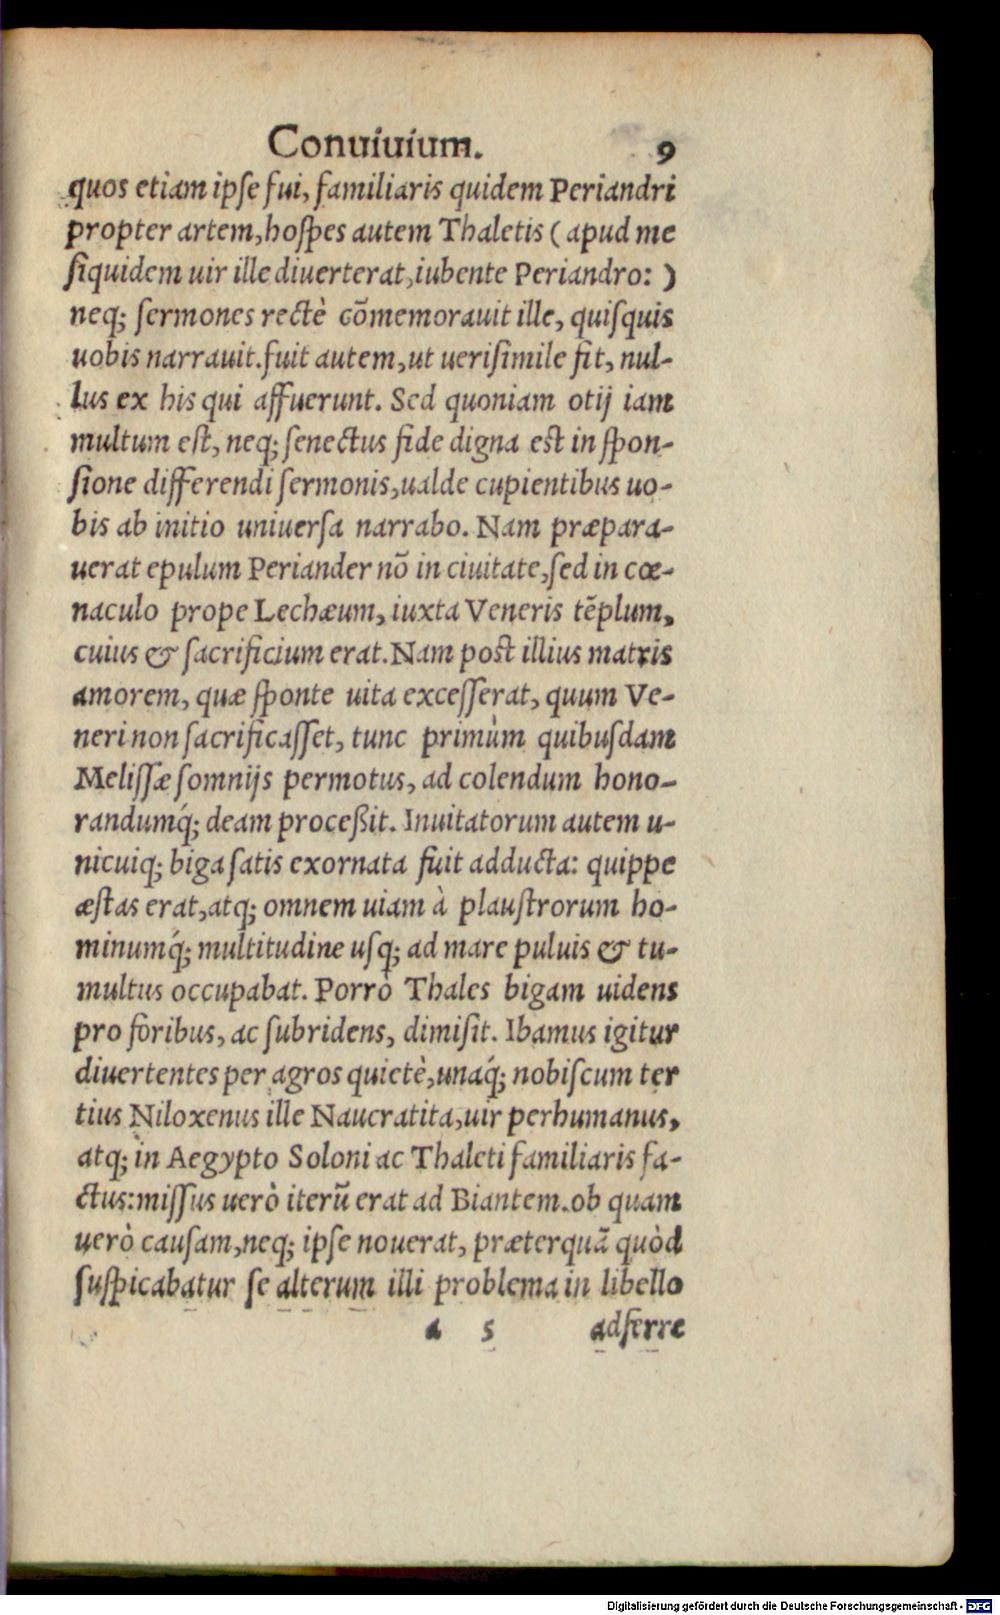 Conuiuium. 9
quos etiam ipse fui, familiaris quidem Periandri
propter artem, hospes autem Thaletis (apud me
siquidem uir ille diuerterat, iubente Periandro: )
neq; sermones rectè cõmemorauit ille, quisquis
uobis narrauit. fuit autem, ut uerisimile fit, nul-
lus ex his qui affuerunt. Sed quoniam otij iam
multum est, neq; senectus fide digna est in spon-
sione differendi sermonis, ualde cupientibus uo-
bis ab initio uniuersa narrabo. Nam præpara-
uerat epulum Periander nõ in ciuitate, sed in cœ-
naculo prope Lechæum, iuxta Veneris tẽplum,
cuius & sacrificium erat. Nam post illius matris
amorem, quæ sponte uita excesserat, quum Ve-
neri non sacrificasset, tunc primùm quibusdam
Melissæ somnijs permotus, ad colendum hono-
randumq́; deam proceßit. Inuitatorum autem u-
nicuiq; biga satis exornata fuit adducta: quippe
æstas erat, atq; omnem uiam à plaustrorum ho-
minumq́; multitudine usq; ad mare puluis & tu-
multus occupabat. Porrò Thales bigam uidens
pro foribus, ac subridens, dimisit. Ibamus igitur
diuertentes per agros quietè, unaq́; nobiscum ter
tius Niloxenus ille Naucratita, uir perhumanus,
atq; in Aegypto Soloni ac Thaleti familiaris fa-
ctus: missus uerò iterũ erat ad Biantem. ob quam
uerò causam, neq; ipse nouerat, præterquã quòd
suspicabatur se alterum illi problema in libello
a 5 adferre
Digitalisierung gefördert durch die Deutsche Forschungsgemeinschaft - DFG